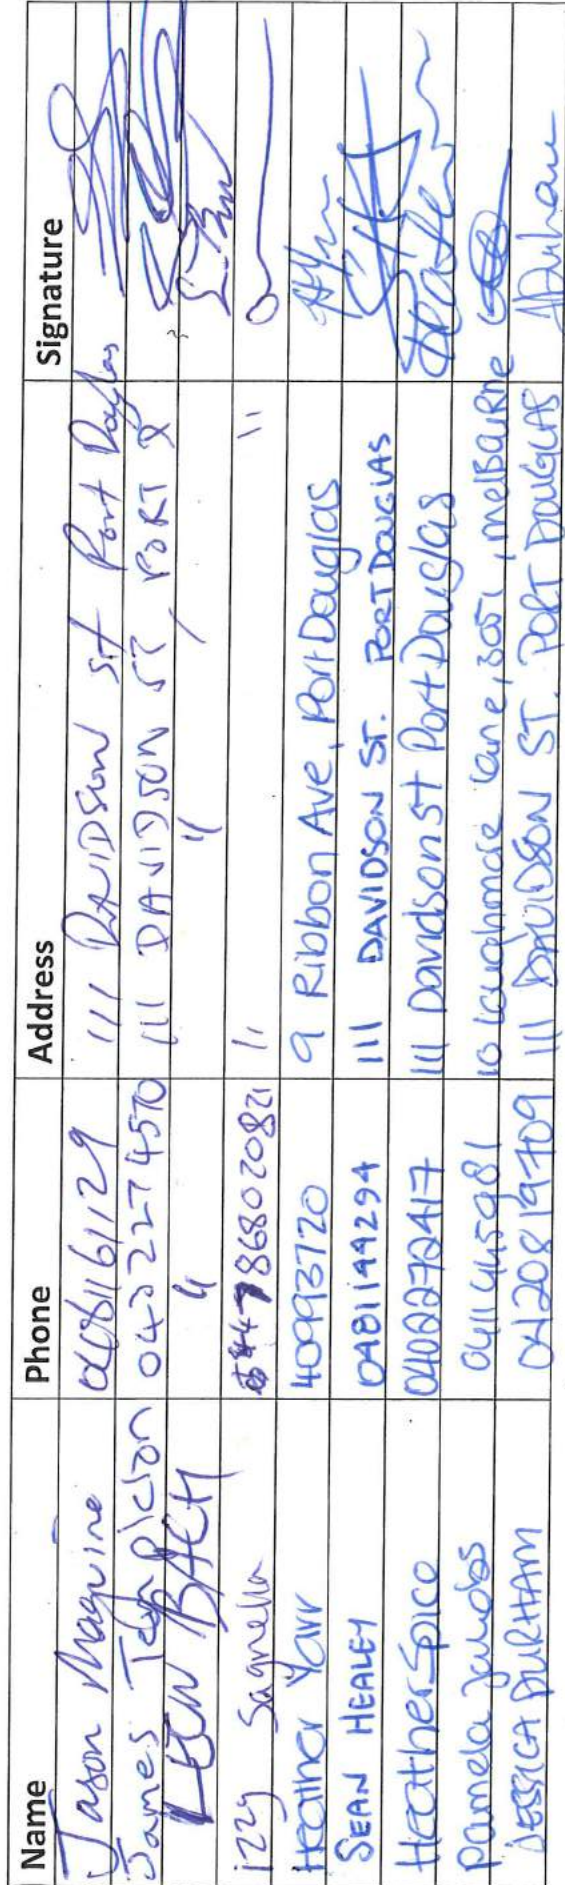 Name Phone Address Signature
Jason Maguire 0408116 1129 111 DAVIDSON st Port Douglas
James 0432274570 111 DAVIDSON ST, PORT D
LEW BACH " "
izzy Sagnella 447868020821 " "
Heather Yarr 40993720 9 Ribbon Ave, Port Douglas
SEAN HEALEY 0481144294 111 DAVIDSON ST. PORT DOUGLAS
Heather Spice 0402272417 111 Davidson st Port Douglas
Pamela Jacobs 0411445981 10 lane, 3051, melbourne
JESSICA DURHAM 0420819709 111 DAVIDSON ST. PORT DOUGLAS